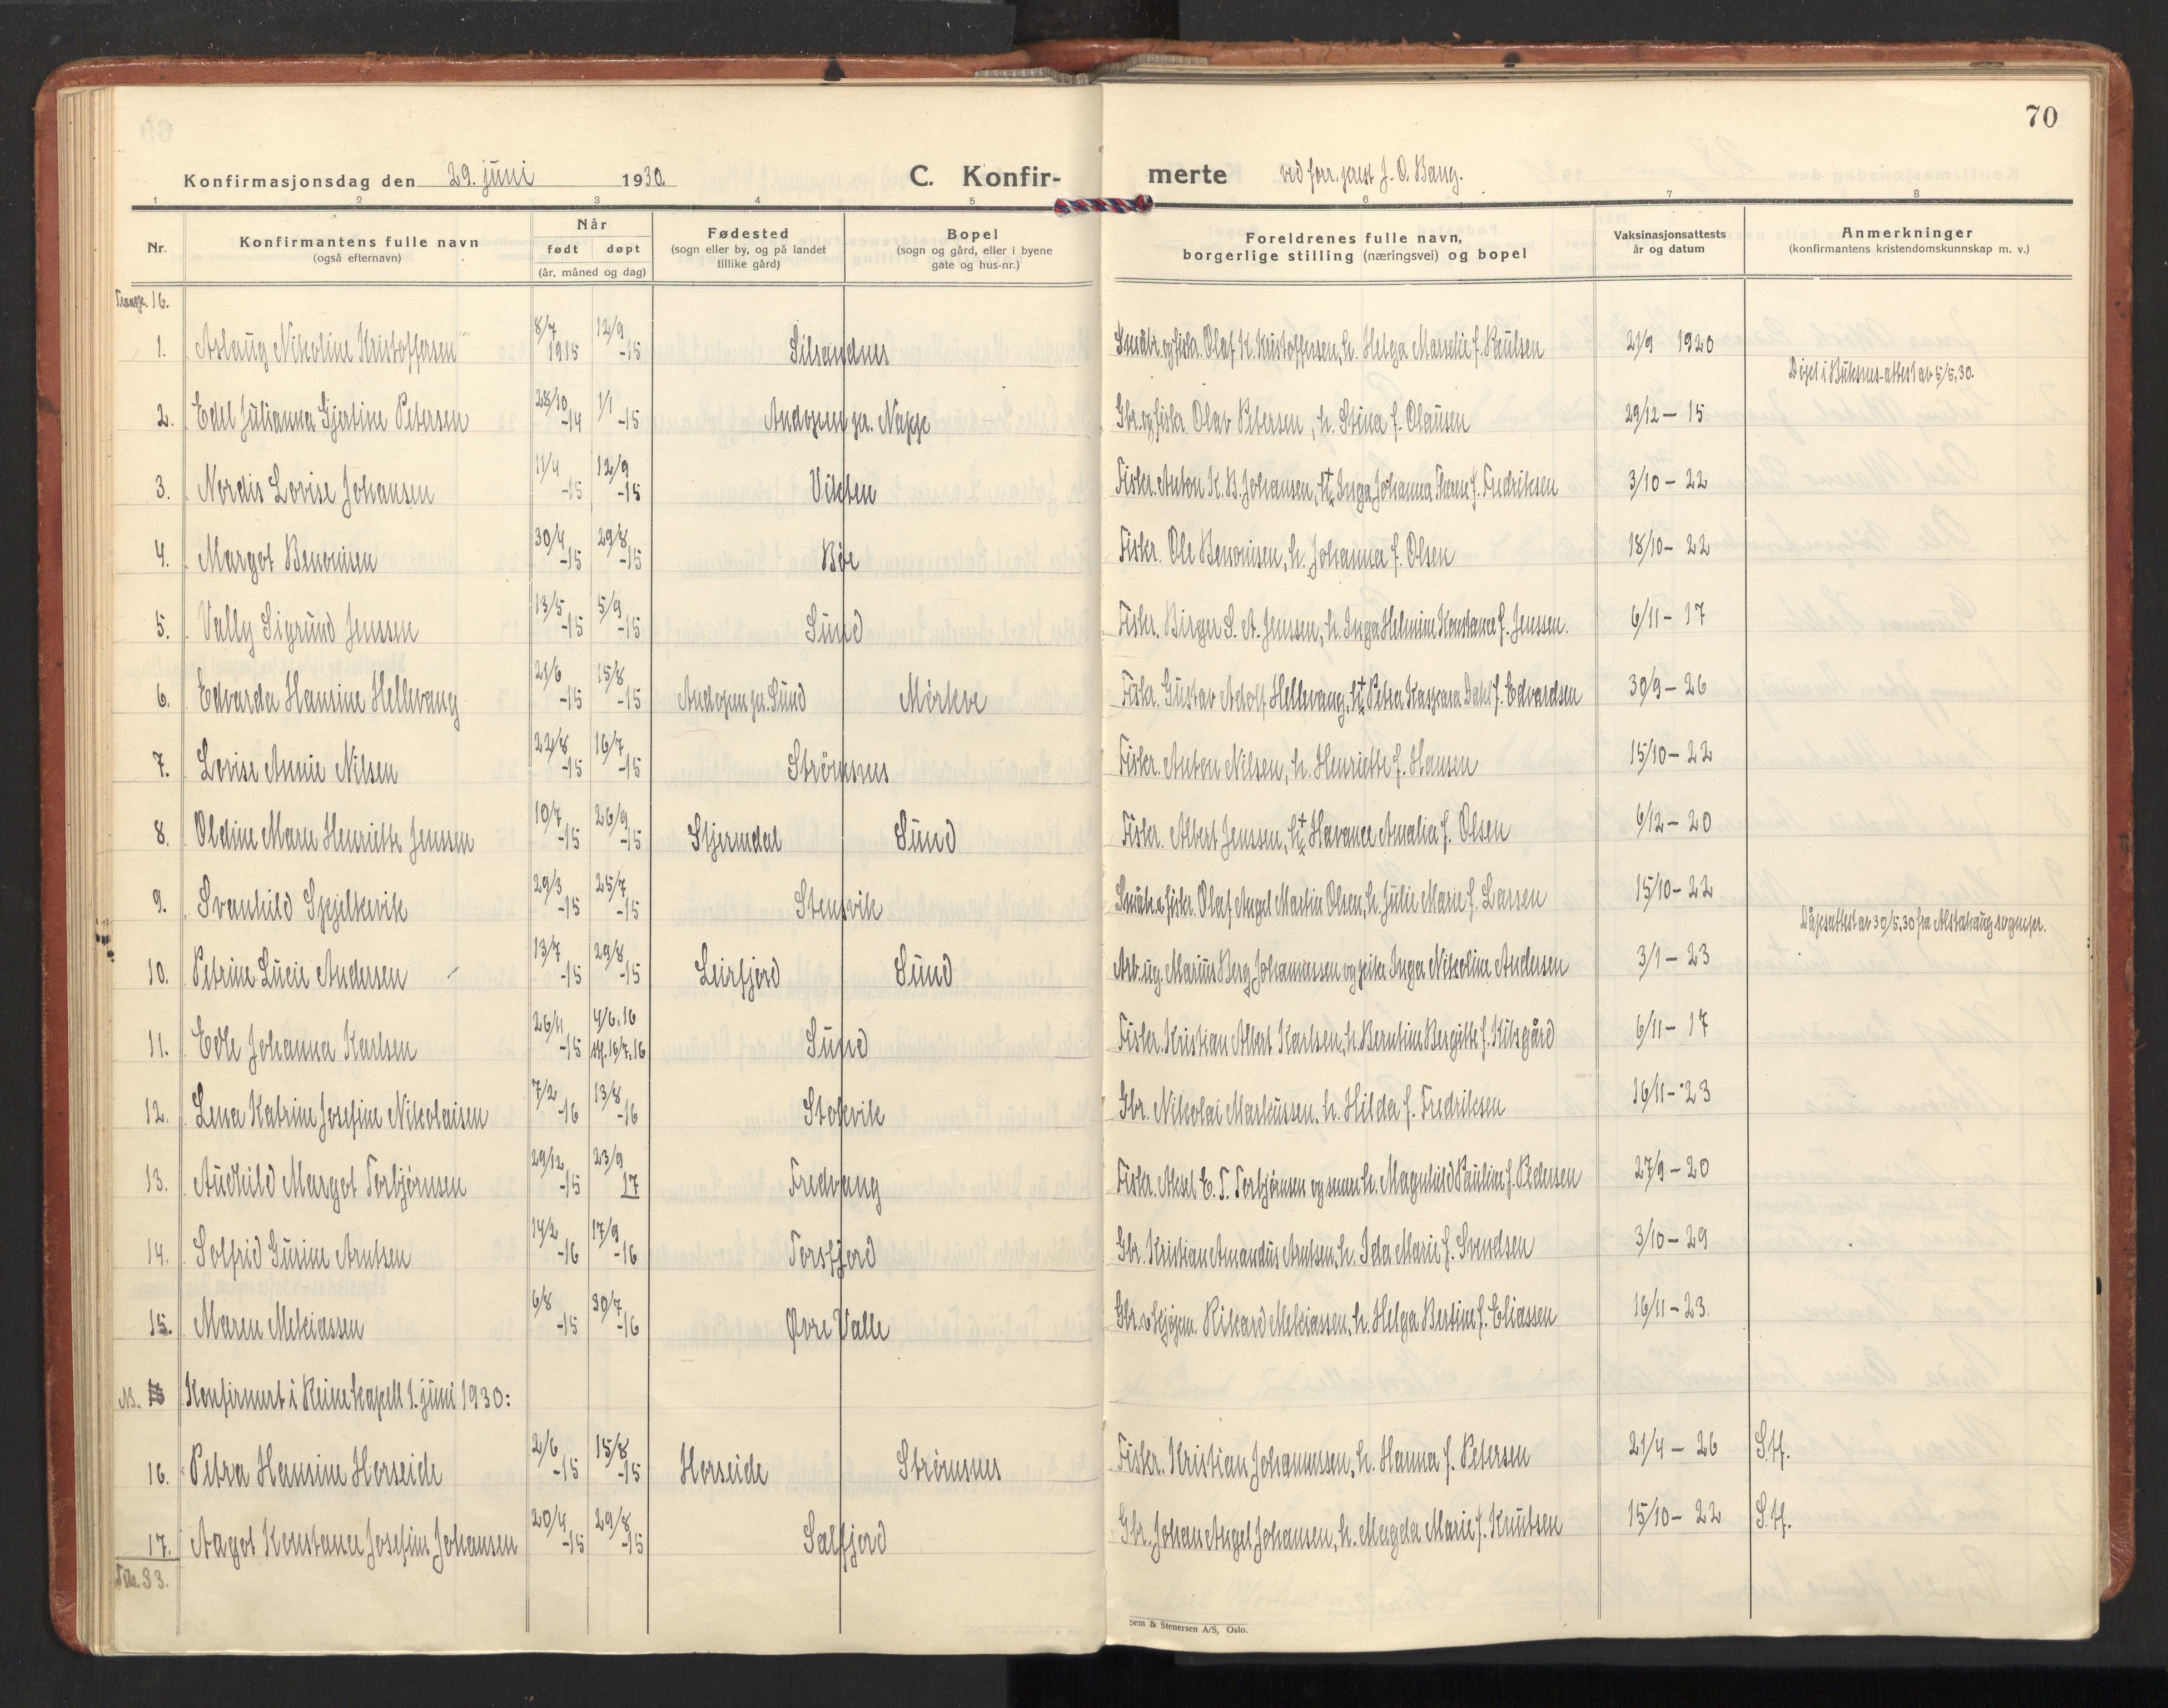 70
Konfirmasjonsdag den 29. juni 1930. C. Konfir- merte ved forr. prest J. O. Bang.
1 2 3 4 5 6 7 8
Nr. Konfirmantens fulle navn (også efternavn) Når født døpt (år, måned og dag) Fødested (sogn eller by, og på landet tillike gård) Bopel (sogn og gård, eller i byene gate og hus-nr.) Foreldrenes fulle navn, borgerlige stilling (næringsvei) og bopel Vaksinasjonsattests år og datum Anmerkninger (konfirmantens kristendomskunnskap m. v.)
Transp. 16.
1. Aslaug Nikoline Kristoffersen 8/7 1915 12/9 -15 Silsandnes Småbr. og fisker. Olaf K. Kristoffersen, h. Helga Marselie f. Paulsen 21/9 1920
Døpt i Buksnes - attest av 5/5, 30.
2. Edel Julianna Gjertine Petersen 28/10 -14 1/1 -15 Andopen pr. Napp Gbr. og fisker. Olav Petersen, h. Stina f. Olausen 29/12 - 15
3. Nordis Lovise Johansen 11/4 -15 12/9 -15 Vikten Fisker. Anton K. B. Johansen, h. Inga Johanna f. Fredriksen 3/10 - 22
4. Margot Benonisen 30/4 -15 29/8 -15 Bøe Fisker. Ole Benonisen, h. Johanna f. Olsen 18/10 - 22
5. Vally Sigrund Jenssen 13/5 -15 5/9 -15 Sund Fisker. Birger S. A. Jenssen, h. Inga Helmine Konstance f. Jenssen. 6/11 - 17
6. Edvarda Hansine Hellevang 21/6 -15 15/8 -15 Andopen pr. Sund Mørkve Fisker. Gustav Adolf Hellevang, h. Petra Kaspara Dahl f. Edvardsen 30/9 - 26
7. Lovise Annie Nilsen 22/8 -15 16/7 -15 Strømsnes Fisker. Anton Nilsen, h. Henriette f. Hansen 15/10 - 22
8. Oldine Marie Henriette Jenssen 10/7 -15 26/9 -15 Stjerndal Sund Fisker. Albert Jenssen, h. Havance Amalia f. Olsen 6/12 - 20
9. Svanhild Spjelkevik 29/3 -15 25/7 -15 Stensvik Småbr. & fisker. Olaf Angel Martin Olsen, h. Julie Marie f. Larsen 15/10 - 22
Dåpsattest av 30/5, 30 fra Alstahaug sognepr.
10. Petrine Lucie Andersen 13/7 -15 29/8 -15 Leirfjord Sund Arb. ug. Marius Berg Johannessen og pike Inga Nikoline Andersen 3/1 - 23
11. Edle Johanna Karlsen 26/11 -15 4/6.16 stf. 16/7.16 Sund Fisker. Kristian Albert Karlsen, h. Berntine Bergitte f. Kilsgård 6/11 - 17
12. Lena Katrine Josefine Nikolaisen 7/2 -16 13/8 -16 Storvik Gbr. Nikolai Markussen. h. Hilda f. Fredriksen 16/11 - 23
13. Audhild Margot Torbjørnsen 29/12 -15 23/9 17 Fredvang Fisker. Aksel E. T. Torbjørnsen og senere h. Magnhild Pauline f. Pedersen 27/9 - 20
14. Solfrid Gurine Arntsen 14/2 -16 17/9 -16 Torsfjord Gbr. Kristian Amandus Arntsen, h. Ida Marie f. Svendsen 3/10 - 29
15. Maren Mekiassen 6/8 -15 30/7 -16 Øvre Valle Gbr. & Rikard Mekiassen, h. Helga Bertine f. Eliassen 16/11 - 23.
NB. Konfirmert i Reine kapell 1. juni 1930:
16. Petra Hansine Horseide 2/6 -15 15/8 -15 Horseide Strømsnes Fisker. Kristian Johannessen, h. Hanna f. Petersen 21/4 - 26 S.H.
17. Aagot Konstance Josefine Johansen 20/4 -15 29/8 -15 Selfjord Gbr. Johan Angel Johansen, h. Magda Marie f. Knutsen 15/10 - 22 S.H.
33.
Sem & Stenersen A/S, Oslo.